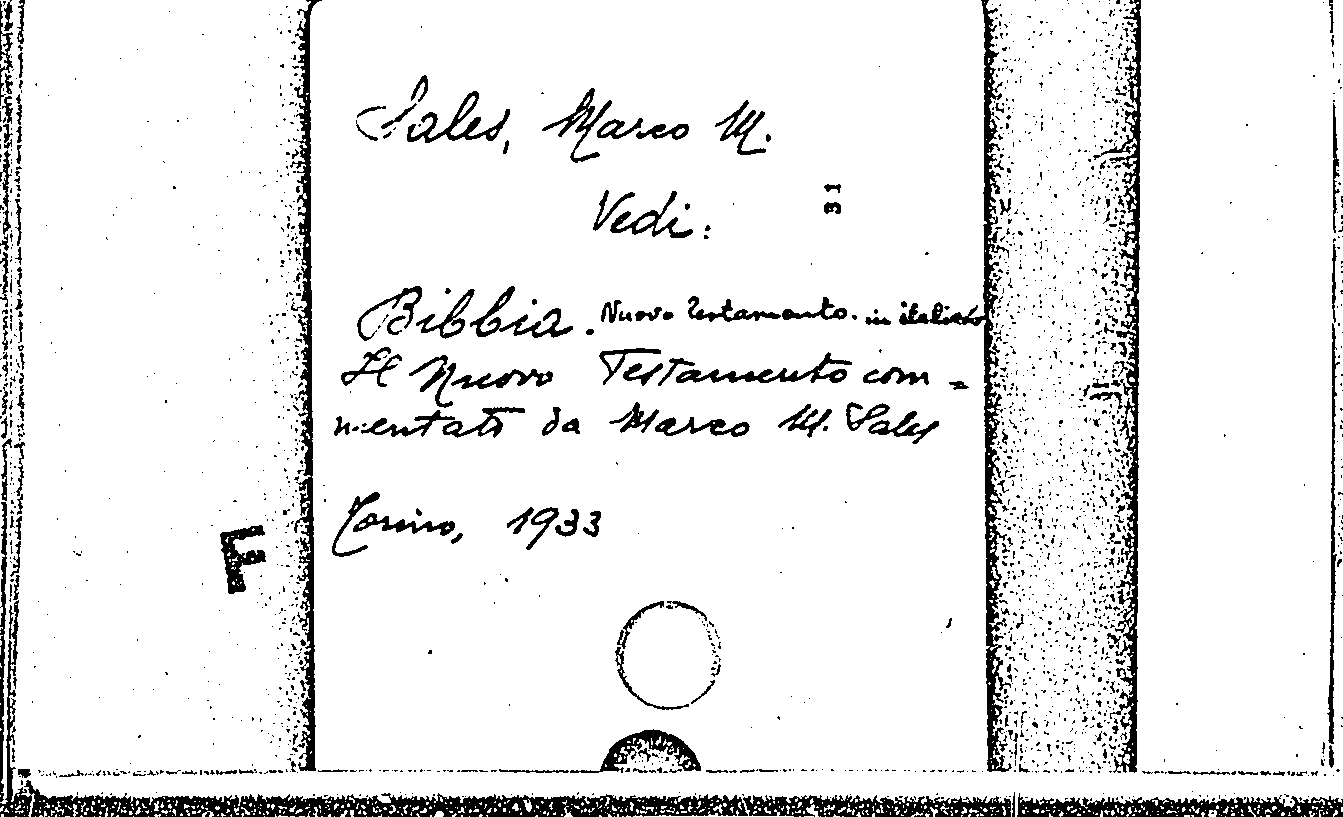 Sales, Marco M.
31
Vedi:
Bibbia. Nuovo Testamento. in italiano
Il Nuovo Testamento com=
mentato da Marco M. Sales
Torino, 1933
F